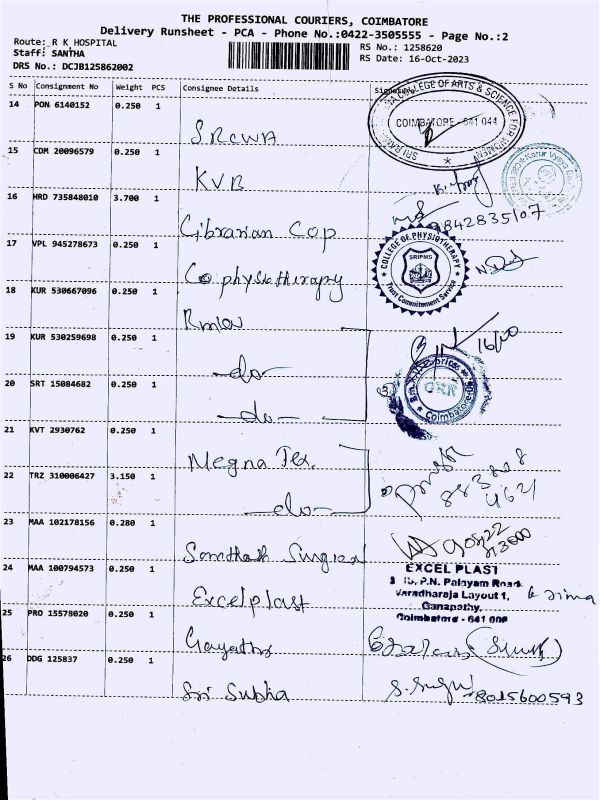 THE PROFESSIONAL COURIERS, COIMBATORE
Delivery Runsheet - PCA - Phone No.:0422-3505555 - Page No.:2
Route: R K HOSPITAL
Staff: SANTHA
DRS No.: DCJB125862002
RS No.: 1258620
RS Date: 16-Oct-2023
S No Consignment No Weight PCS Consignee Details Signature
14 PON 6140152 0.250 1
SRCWA
COLLEGE OF ARTS & SCIENCE FOR WOMEN
COIMBATORE - 641 044
15 CDM 20096579 0.250 1
KVB
Karur Vysya
16 HRD 735848010 3.700 1
Librarian Cop
9842835107
17 VPL 945278673 0.250 1
Co physiotherapy
COLLEGE OF PHYSIOTHERAPY
SRIPMS
Trust Commitement Service
18 KUR 530667096 0.250 1
19 KUR 530259698 0.250 1
-do-
16/10
20 SRT 15084682 0.250 1
-do-
GRK
Coimbatore
21 KVT 2930762 0.250 1
Megna Tex.
22 TRZ 310006427 3.150 1
-do-
23 MAA 102178156 0.280 1
24 MAA 100794573 0.250 1
Excelplast
EXCEL PLAST
P.N. Palayam Road
Varadharaja Layout 1,
Ganapathy,
Coimbatore - 641 006
25 PRO 15578020 0.250 1
Gayathri
26 DDG 125837 0.250 1
Sri Subha
8015600593